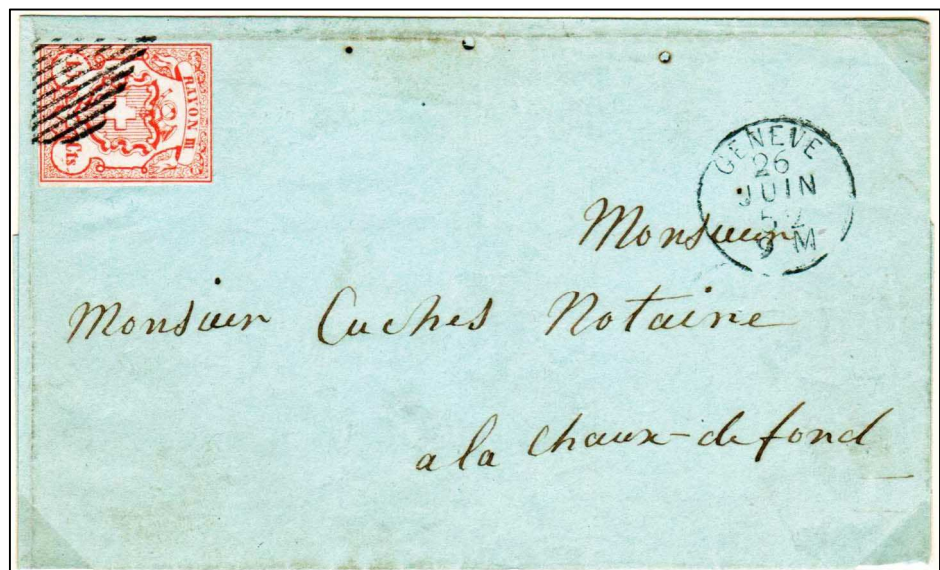 RAYON III
Cts.
GENEVE
26
JUIN
52
9 M
Monsieur
Monsieur Cuches Notaire
a la Chaux-de fond